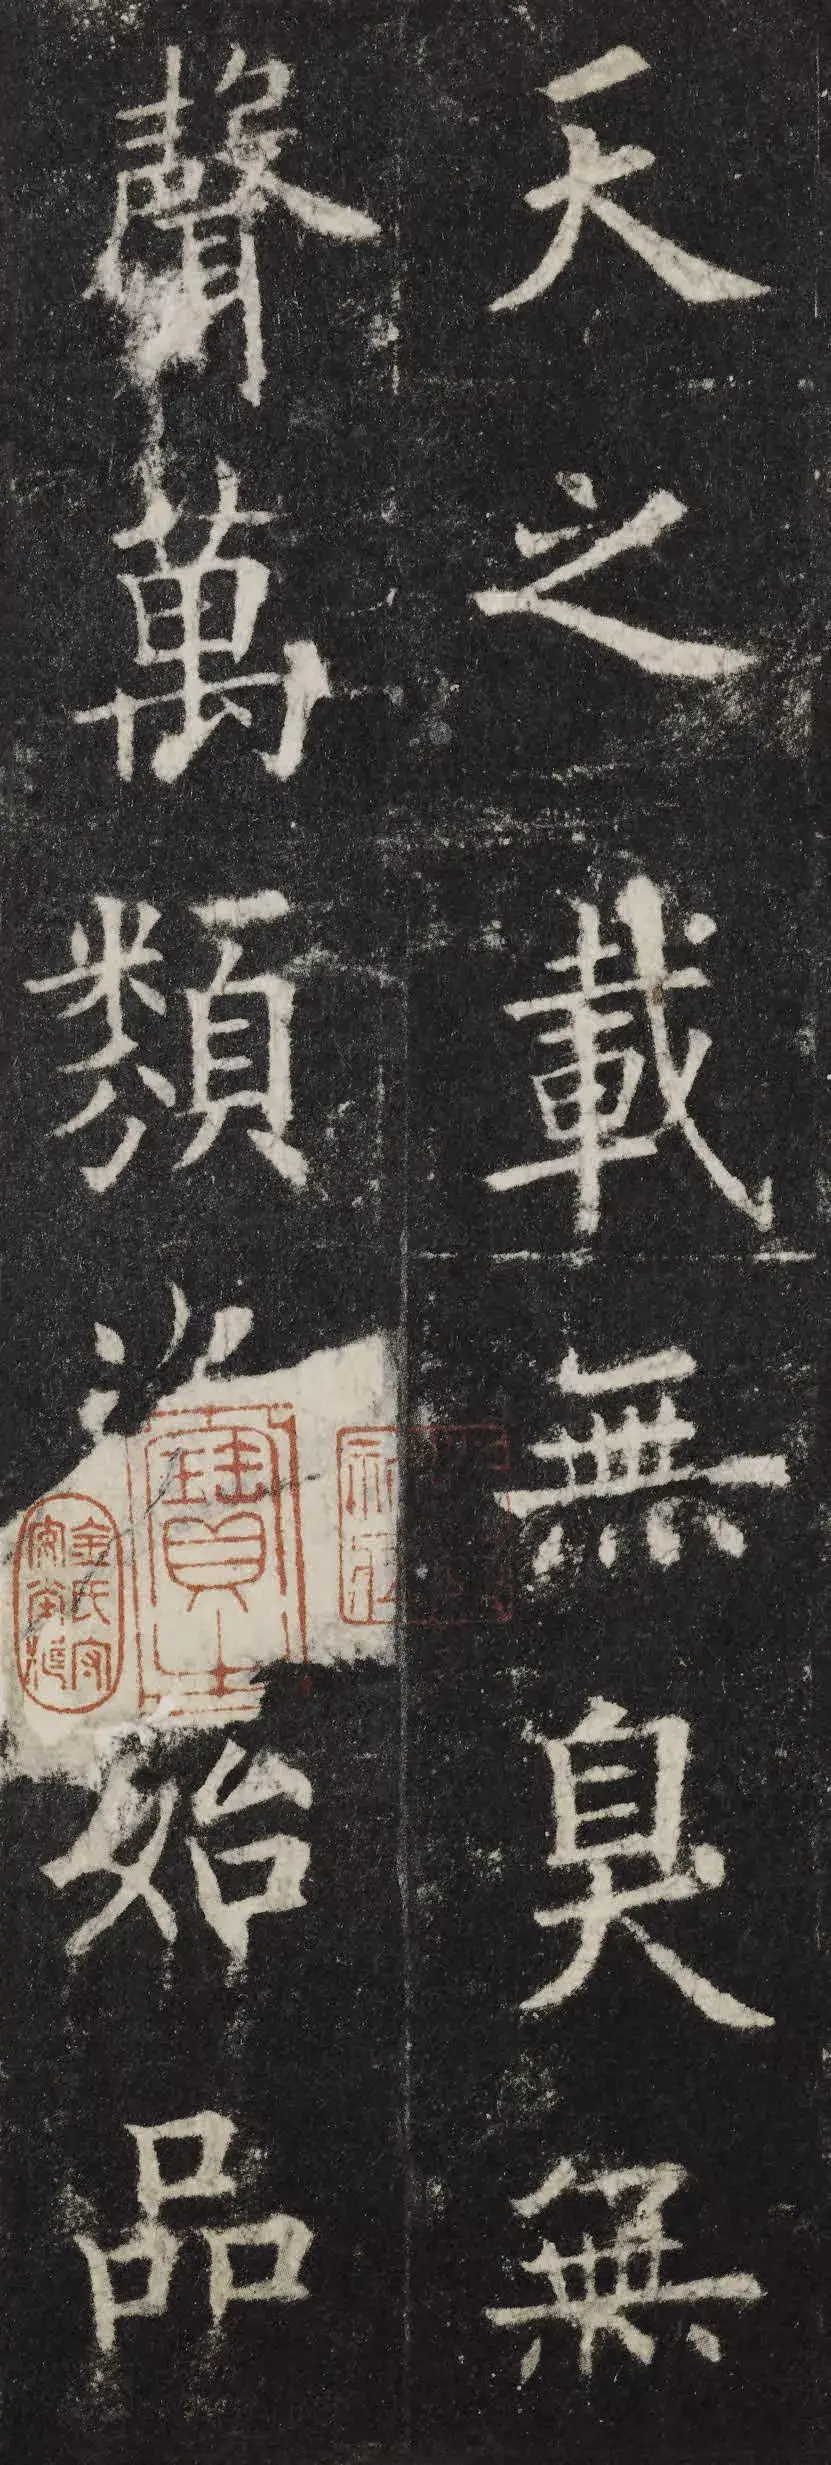 天之載無臭無
聲萬類始品